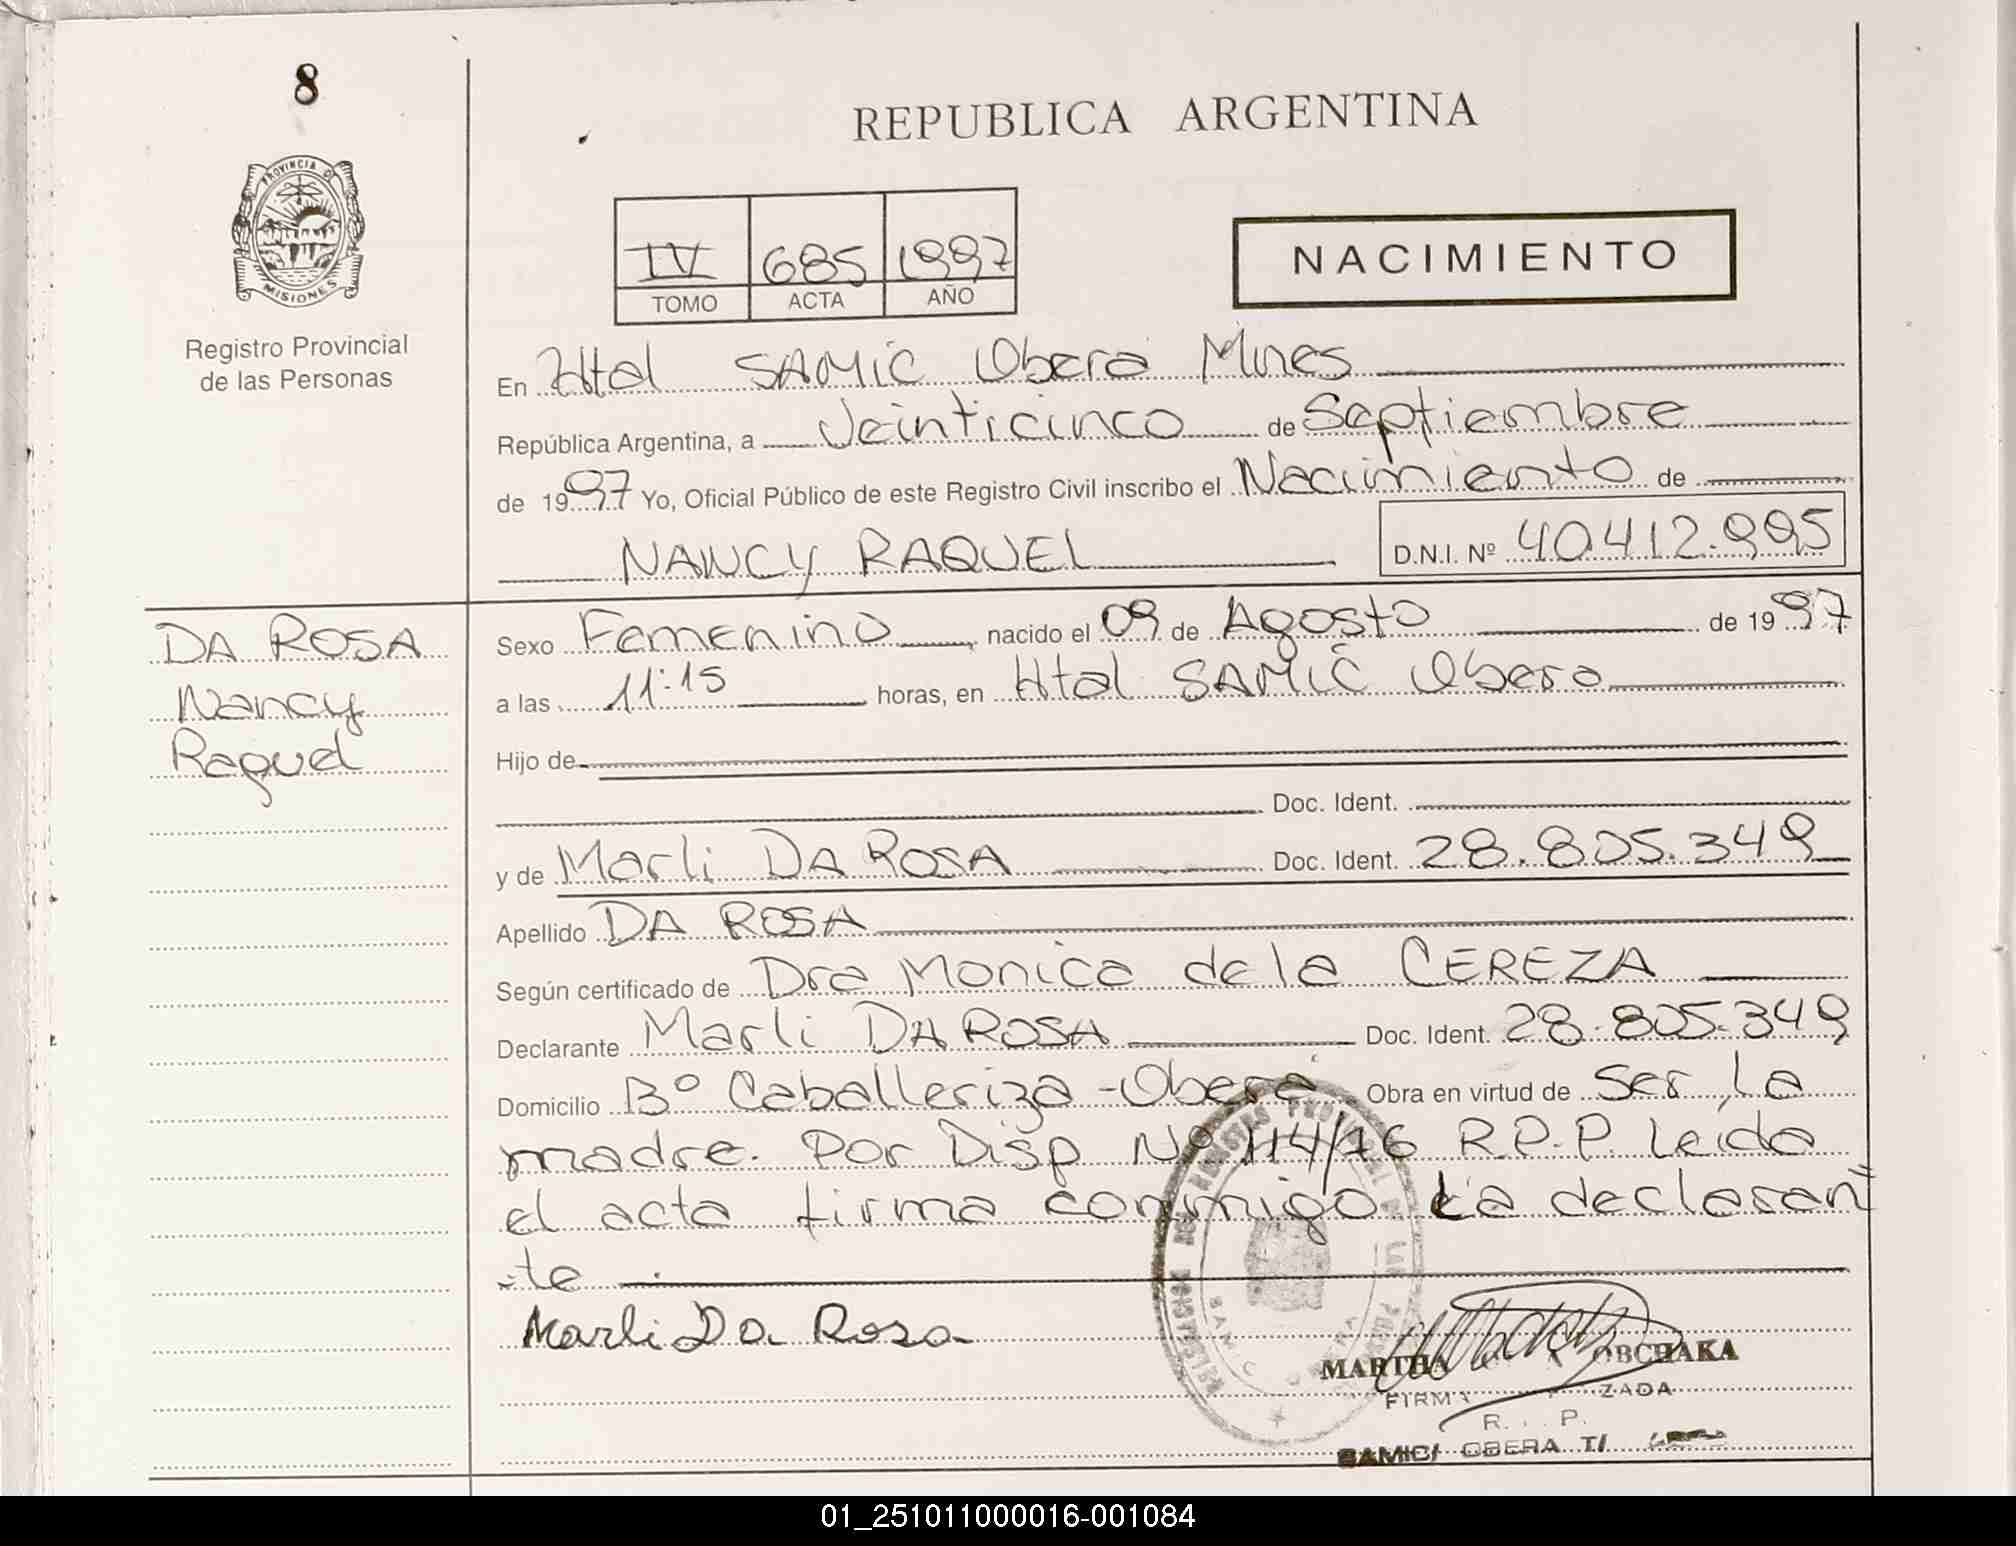 8
PROVINCIA D
MISIONES
Registro Provincial
de las Personas
REPUBLICA ARGENTINA
IV 685 1997
TOMO ACTA AÑO
NACIMIENTO
En Htal SAMIC Oberá Mnes
República Argentina, a Veinticinco de Septiembre
de 1997 Yo, Oficial Público de este Registro Civil inscribo el Nacimiento de
NANCY RAQUEL D.N.I. Nº 40.412.995
DA ROSA
Nancy
Raquel
Sexo Femenino, nacido el 09 de Agosto de 1997
a las 11:15 horas, en Htal SAMIC Obera
Hijo de
Doc. Ident.
y de Marli DA ROSA Doc. Ident. 28.805.349
Apellido DA ROSA
Según certificado de Dra Monica de la CEREZA
Declarante Marli DA ROSA Doc. Ident. 28.805.349
Domicilio Bº Caballeriza - Oberá Obra en virtud de Ser la
madre. Por Disp Nº 114/76 R.P.P. Leida
el acta firma conmigo la declaran=
te
Marli Da Rosa
MARTHA OBCHAKA
FIRMA ZADA
R. P.
SAMIC/ OBERA T/
01_251011000016-001084